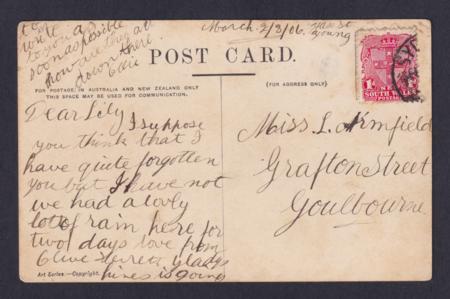 to
write
to you as
soon as possible
how are they all
down there
Ellie
March 2/3/06.
Young
POST CARD.
FOR POSTAGE IN AUSTRALIA AND NEW ZEALAND ONLY
THIS SPACE MAY BE USED FOR COMMUNICATION.
(FOR ADDRESS ONLY)
Dear Lily
I suppose
you think that I
have quite forgotten
you but I have not
we had a lovly
lott of rain here for
two days love from
Clive
gladys
hines is going
Art Series.—Copyright.
Miss L. Armfield
Grafton Street
Goulbourne